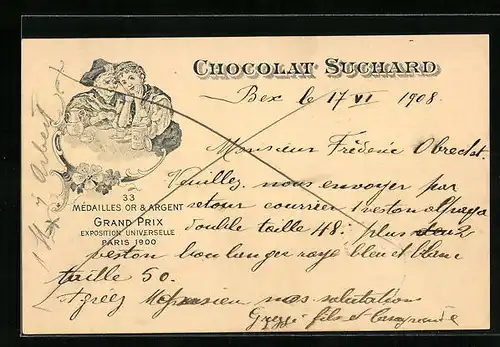 CHOCOLAT SUCHARD
Bex le 17 VI 1908.
Monsieur Fréderic Obrecht.
Veuillez nous envoyer par
retour courrier 1 veston alpaga
double taille 48. plus 2
veston boulanger raye bleu et blanc
taille 50.
Agréez Monsieur nos salutations
fils et
33
MÉDAILLES OR & ARGENT
GRAND PRIX
EXPOSITION UNIVERSELLE
PARIS 1900